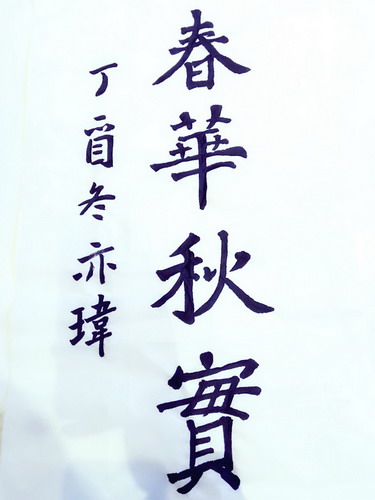 春華秋實
丁酉冬亦瑋